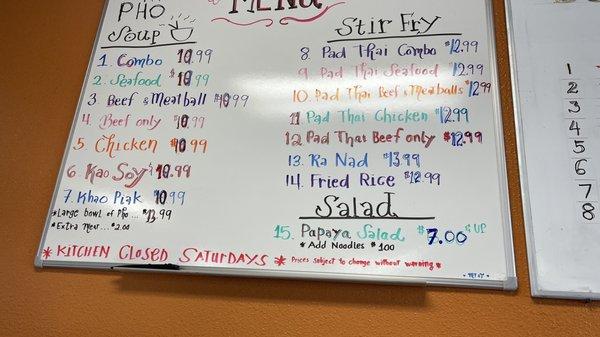 PHO
MENU
Soup
1. Combo 10.99
2. Seafood $10.99
3. Beef & Meatball $10.99
4. Beef only $10.99
5. Chicken $10.99
6. Kao Soy $10.99
7. Khao Piak $10.99
* Large bowl of Pho... $13.99
* Extra Meat... $2.00
Stir Fry
8. Pad Thai Combo $12.99
9. Pad Thai Seafood $12.99
10. Pad Thai Beef & Meatballs $12.99
11. Pad Thai Chicken $12.99
12. Pad Thai Beef only $12.99
13. Ra Nad $13.99
14. Fried Rice $12.99
Salad
15. Papaya Salad $7.00 & UP
* Add Noodles $1.00
* KITCHEN CLOSED SATURDAYS *
Prices subject to change without warning *
1
2
3
4
5
6
7
8